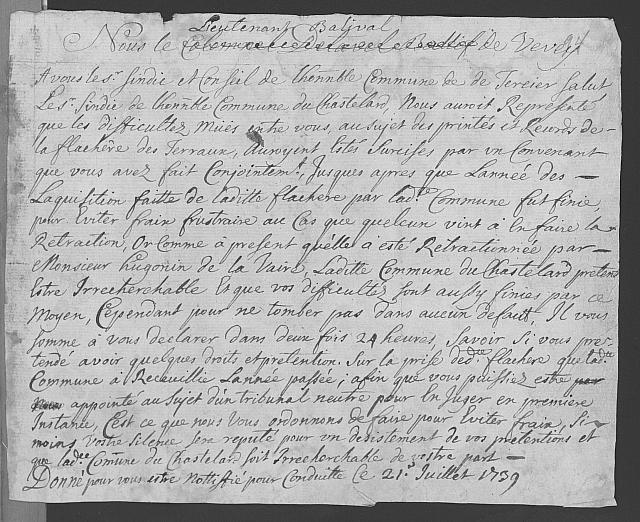 Lieutenant Balival
Nous le de Vevey
A vous les Sr. Sindic et Conseil de l'honnble Commune de de Tercier Salut
Le Sr. Sindic de l'honnble Commune du Chastelard, Nous auroit Representé
que les difficultez Muës entre vous, au Sujet des printés et Records de-
la flachère des Terraux, Auroyent Estés Surcises par un Convenant
que vous avez fait Conjointemt., Jusques apres que L'année des —
L'aquisition faitte de laditte flachere par ladte. Commune fut finie,
pour Eviter frais frustraire au Cas que quelcun vint à En faire la
Retraction, Or Comme à présent quelle a esté Retractionnée par —
Monsieur hugonin de la Vaire, Laditte Commune du Chastelard prétend
Estre Irrecherchable Et que vos difficultez sont aussy finies par ce
Moyen, Cependant pour ne tomber pas dans aucun defaut, Il vous
somme à vous declarer dans deux fois 24 heures, Savoir Si vous pre-
tendé avoir quelques droits et pretention. Sur la prise dedte. flachere que ladte.
Commune à Recueillie L'année passée; afin que vous puissiez estre par
appointé au Sujet d'un tribunal neutre pour En Juger en premiere
Instance, C'est ce que nous Vous ordonnons de faire pour Eviter frais, Si-
moins Vostre Silence sera reputé pour un desistement de vos pretentions et
que ladte. Commune du Chastelard soit Irrecherchable de vostre part —
Donné pour vous estre Nottiffié pour Conduitte Ce 21e. Juillet 1739